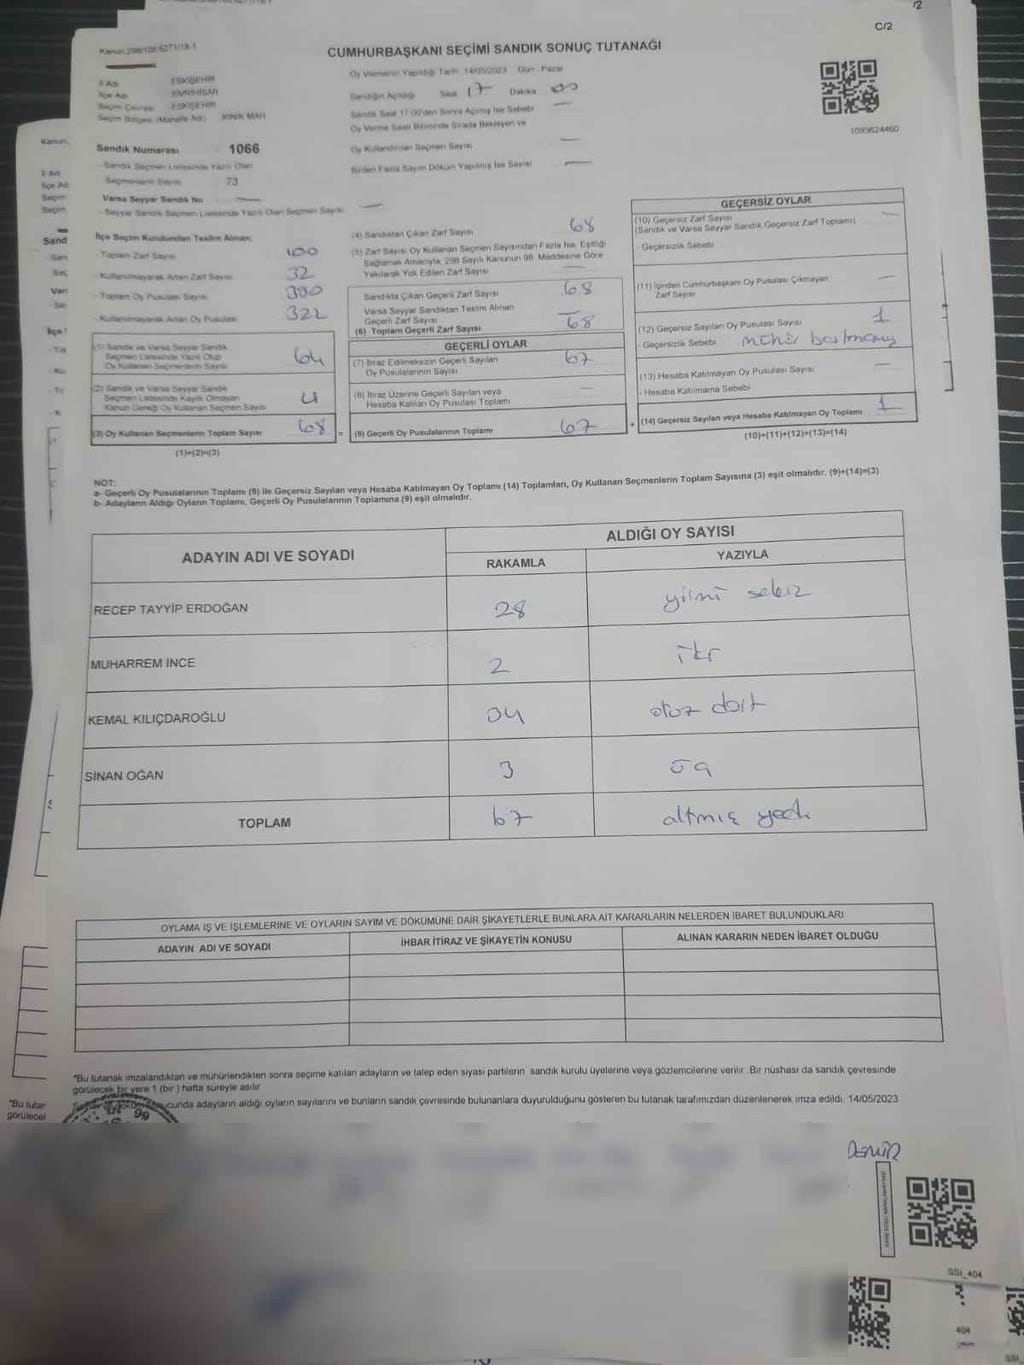 C/2
CUMHURBAŞKANI SEÇİMİ SANDIK SONUÇ TUTANAĞI
Oy Vermenin Yapıldığı Tarih 14/05/2023 Gün Pazar
İl Adı ESKİŞEHİR
İlçe Adı SİVRİHİSAR
Seçim Çevresi ESKİŞEHİR
Seçim Bölgesi (Mahalle Adı) KINIK MAH
Sandığın Açıldığı Saat 17 Dakika 00
Sandık Saat 17.00'den Sonra Açılmış İse Sebebi
Oy Verme Saati Bitiminde Sırada Bekleyen ve
Oy Kullandırılan Seçmen Sayısı
Birden Fazla Sayım Döküm Yapılmış İse Sayısı
1093624460
Sandık Numarası 1066
Sandık Seçmen Listesinde Yazılı Olan
Seçmenlerin Sayısı 73
Varsa Seyyar Sandık No
Seyyar Sandık Seçmen Listesinde Yazılı Olan Seçmen Sayısı
İlçe Seçim Kurulundan Teslim Alınan;
Toplam Zarf Sayısı 100
Kullanılmayarak Artan Zarf Sayısı 32
Toplam Oy Pusulası Sayısı 390
Kullanılmayarak Artan Oy Pusulası 322
(1) Sandık ve Varsa Seyyar Sandık
Seçmen Listesinde Yazılı Olup
Oy Kullanan Seçmenlerin Sayısı 64
(2) Sandık ve Varsa Seyyar Sandık
Seçmen Listesinde Kayıtlı Olmayan
Kanun Gereği Oy Kullanan Seçmen Sayısı 4
(3) Oy Kullanan Seçmenlerin Toplam Sayısı 68
(1)+(2)=(3)
(4) Sandıktan Çıkan Zarf Sayısı 68
(5) Zarf Sayısı Oy Kullanan Seçmen Sayısından Fazla İse, Eşitliği
Sağlamak Amacıyla, 298 Sayılı Kanunun 98. Maddesine Göre
Yakılarak Yok Edilen Zarf Sayısı
Sandıkta Çıkan Geçerli Zarf Sayısı 68
Varsa Seyyar Sandıktan Teslim Alınan
Geçerli Zarf Sayısı
(6) Toplam Geçerli Zarf Sayısı 68
GEÇERLİ OYLAR
(7) İtiraz Edilmeksizin Geçerli Sayılan
Oy Pusulalarının Sayısı 67
(8) İtiraz Üzerine Geçerli Sayılan veya
Hesaba Katılan Oy Pusulası Toplamı
(9) Geçerli Oy Pusulalarının Toplamı 67
GEÇERSİZ OYLAR
(10) Geçersiz Zarf Sayısı
(Sandık ve Varsa Seyyar Sandık Geçersiz Zarf Toplamı)
- Geçersizlik Sebebi
(11) İçinden Cumhurbaşkanı Oy Pusulası Çıkmayan
Zarf Sayısı
(12) Geçersiz Sayılan Oy Pusulası Sayısı 1
- Geçersizlik Sebebi
(13) Hesaba Katılmayan Oy Pusulası Sayısı
- Hesaba Katılmama Sebebi
(14) Geçersiz Sayılan veya Hesaba Katılmayan Oy Toplamı 1
(10)+(11)+(12)+(13)=(14)
NOT:
a- Geçerli Oy Pusulalarının Toplamı (9) ile Geçersiz Sayılan veya Hesaba Katılmayan Oy Toplamı (14) Toplamları, Oy Kullanan Seçmenlerin Toplam Sayısına (3) eşit olmalıdır. (9)+(14)=(3)
b- Adayların Aldığı Oyların Toplamı, Geçerli Oy Pusulalarının Toplamına (9) eşit olmalıdır.
ADAYIN ADI VE SOYADI
ALDIĞI OY SAYISI
RAKAMLA YAZIYLA
RECEP TAYYİP ERDOĞAN 28 yirmi sekiz
MUHARREM İNCE 2 iki
KEMAL KILIÇDAROĞLU 34 otuz dört
SİNAN OĞAN 3 üç
TOPLAM 67 altmış yedi
OYLAMA İŞ VE İŞLEMLERİNE VE OYLARIN SAYIM VE DÖKÜMÜNE DAİR ŞİKAYETLERLE BUNLARA AİT KARARLARIN NELERDEN İBARET BULUNDUKLARI
ADAYIN ADI VE SOYADI İHBAR İTİRAZ VE ŞİKAYETİN KONUSU ALINAN KARARIN NEDEN İBARET OLDUĞU
*Bu tutanak imzalandıktan ve mühürlendikten sonra seçime katılan adayların ve talep eden siyasi partilerin sandık kurulu üyelerine veya gözlemcilerine verilir. Bir nüshası da sandık çevresinde
görülecek bir yere 1 (bir) hafta süreyle asılır
adayların aldığı oyların sayılarını ve bunların sandık çevresinde bulunanlara duyurulduğunu gösteren bu tutanak tarafımızdan düzenlenerek imza edildi. 14/05/2023
DEMİR
SSI_404
404